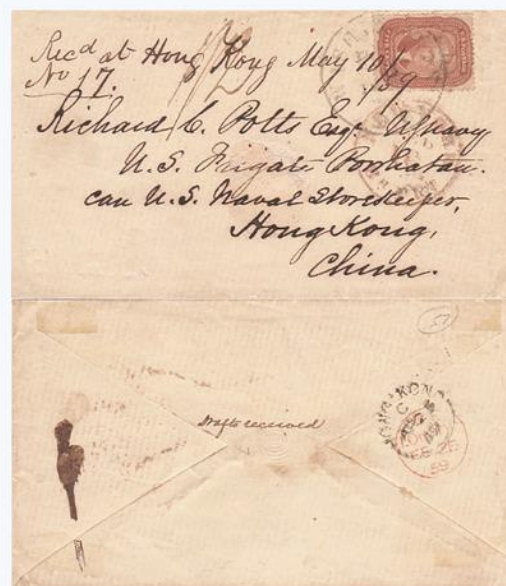 Rec'd at Hong Kong May 10/59
No 17.
Richard C. Potts Esq. USNavy
U.S. Frigate Powhatan.
care U.S. Naval Storekeeper,
Hong Kong,
China.
57
Drafts received
HONG KONG
59